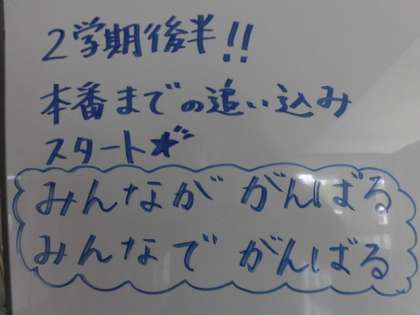 2学期後半!!
本番までの追い込み
スタート★
みんなが がんばる
みんなで がんばる